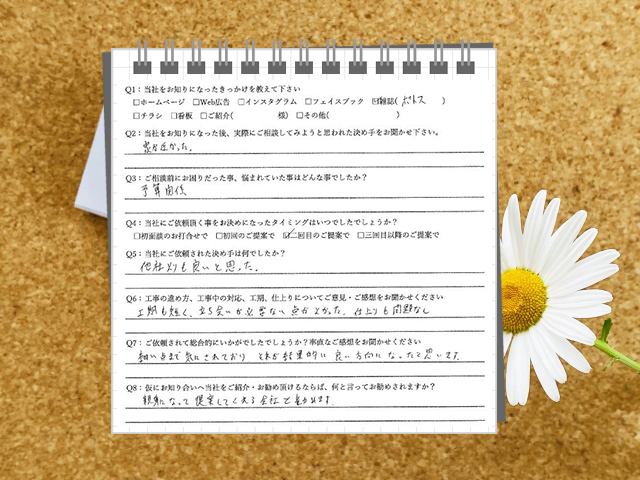 Q1：当社をお知りになったきっかけを教えて下さい
□ホームページ □Web広告 □インスタグラム □フェイスブック ☑雑誌( ポトス )
□チラシ □看板 □ご紹介( 様) □その他( )
Q2：当社をお知りになった後、実際にご相談してみようと思われた決め手をお聞かせ下さい。
家から近かった。
Q3：ご相談前にお困りだった事、悩まれていた事はどんな事でしたか？
予算関係
Q4：当社にご依頼頂く事をお決めになったタイミングはいつでしたでしょうか？
□初面談のお打合せで □初回のご提案で ☑二回目のご提案で □三回目以降のご提案で
Q5：当社にご依頼された決め手は何でしたか？
他社よりも良いと思った。
Q6：工事の進め方、工事中の対応、工期、仕上りについてご意見・ご感想をお聞かせください
工期も短く、立ち会いが必要ない点がよかった。仕上りも問題なし
Q7：ご依頼されて総合的にいかがでしたでしょうか？率直なご感想をお聞かせください
細い点まで気にされており それが結果的に良い方向になったと思います。
Q8：仮にお知り合いへ当社をご紹介・お勧め頂けるならば、何と言ってお勧めされますか？
親身になって提案してくれる会社と勧めます。